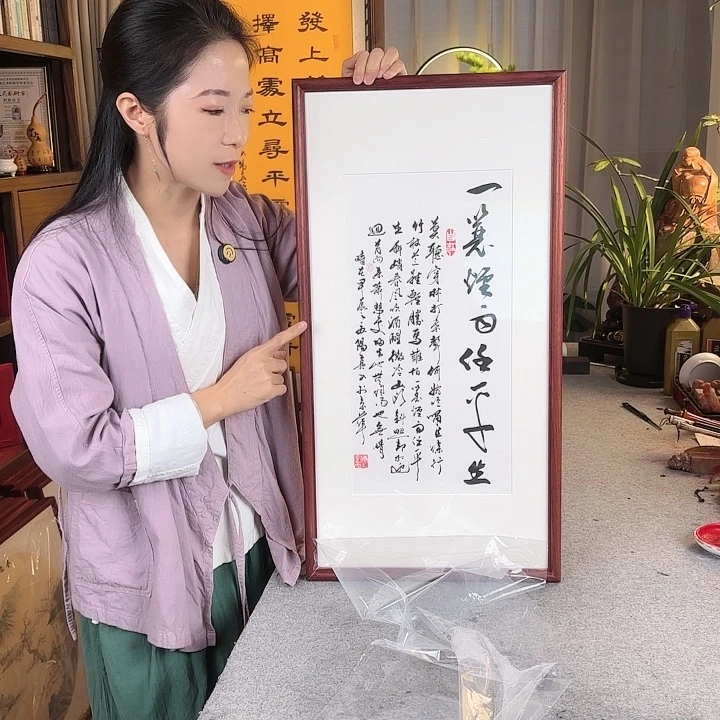 發上
擇高處立尋平
一蓑煙雨任平生
莫聽穿林打葉聲何妨吟嘯且徐行
竹杖芒鞋輕勝馬誰怕一蓑煙雨任平
生料峭春風吹酒醒微冷山頭斜照却相迎
迴首向來蕭瑟處歸去也無風雨也無晴
時在甲辰